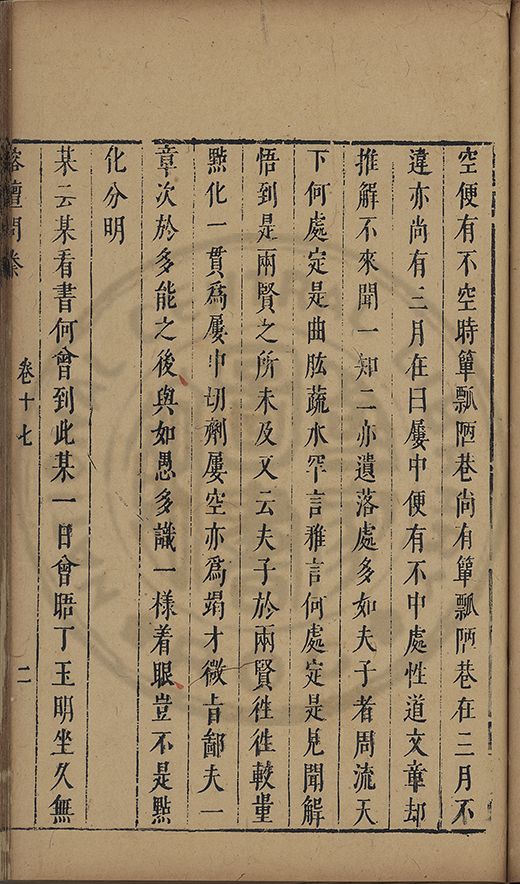 空便有不空時簞瓢陋巷尚有簞瓢陋巷在三月不
違亦尚有三月在曰屢中便有不中處性道文章却
推解不來聞一知二亦遺落處多如夫子者周流天
下何處定是曲肱疏水罕言雅言何處定是見聞解
悟到是兩賢之所未及又云夫子於兩賢徃徃較量
㸃化一貫為屢中切劑屢空亦為竭才微旨鄙夫一
章次於多能之後與如愚多識一樣着眼豈不是㸃
化分明
某云某看書何曾到此某一日曾晤丁玉明坐久無
榕壇問業
卷十七
二